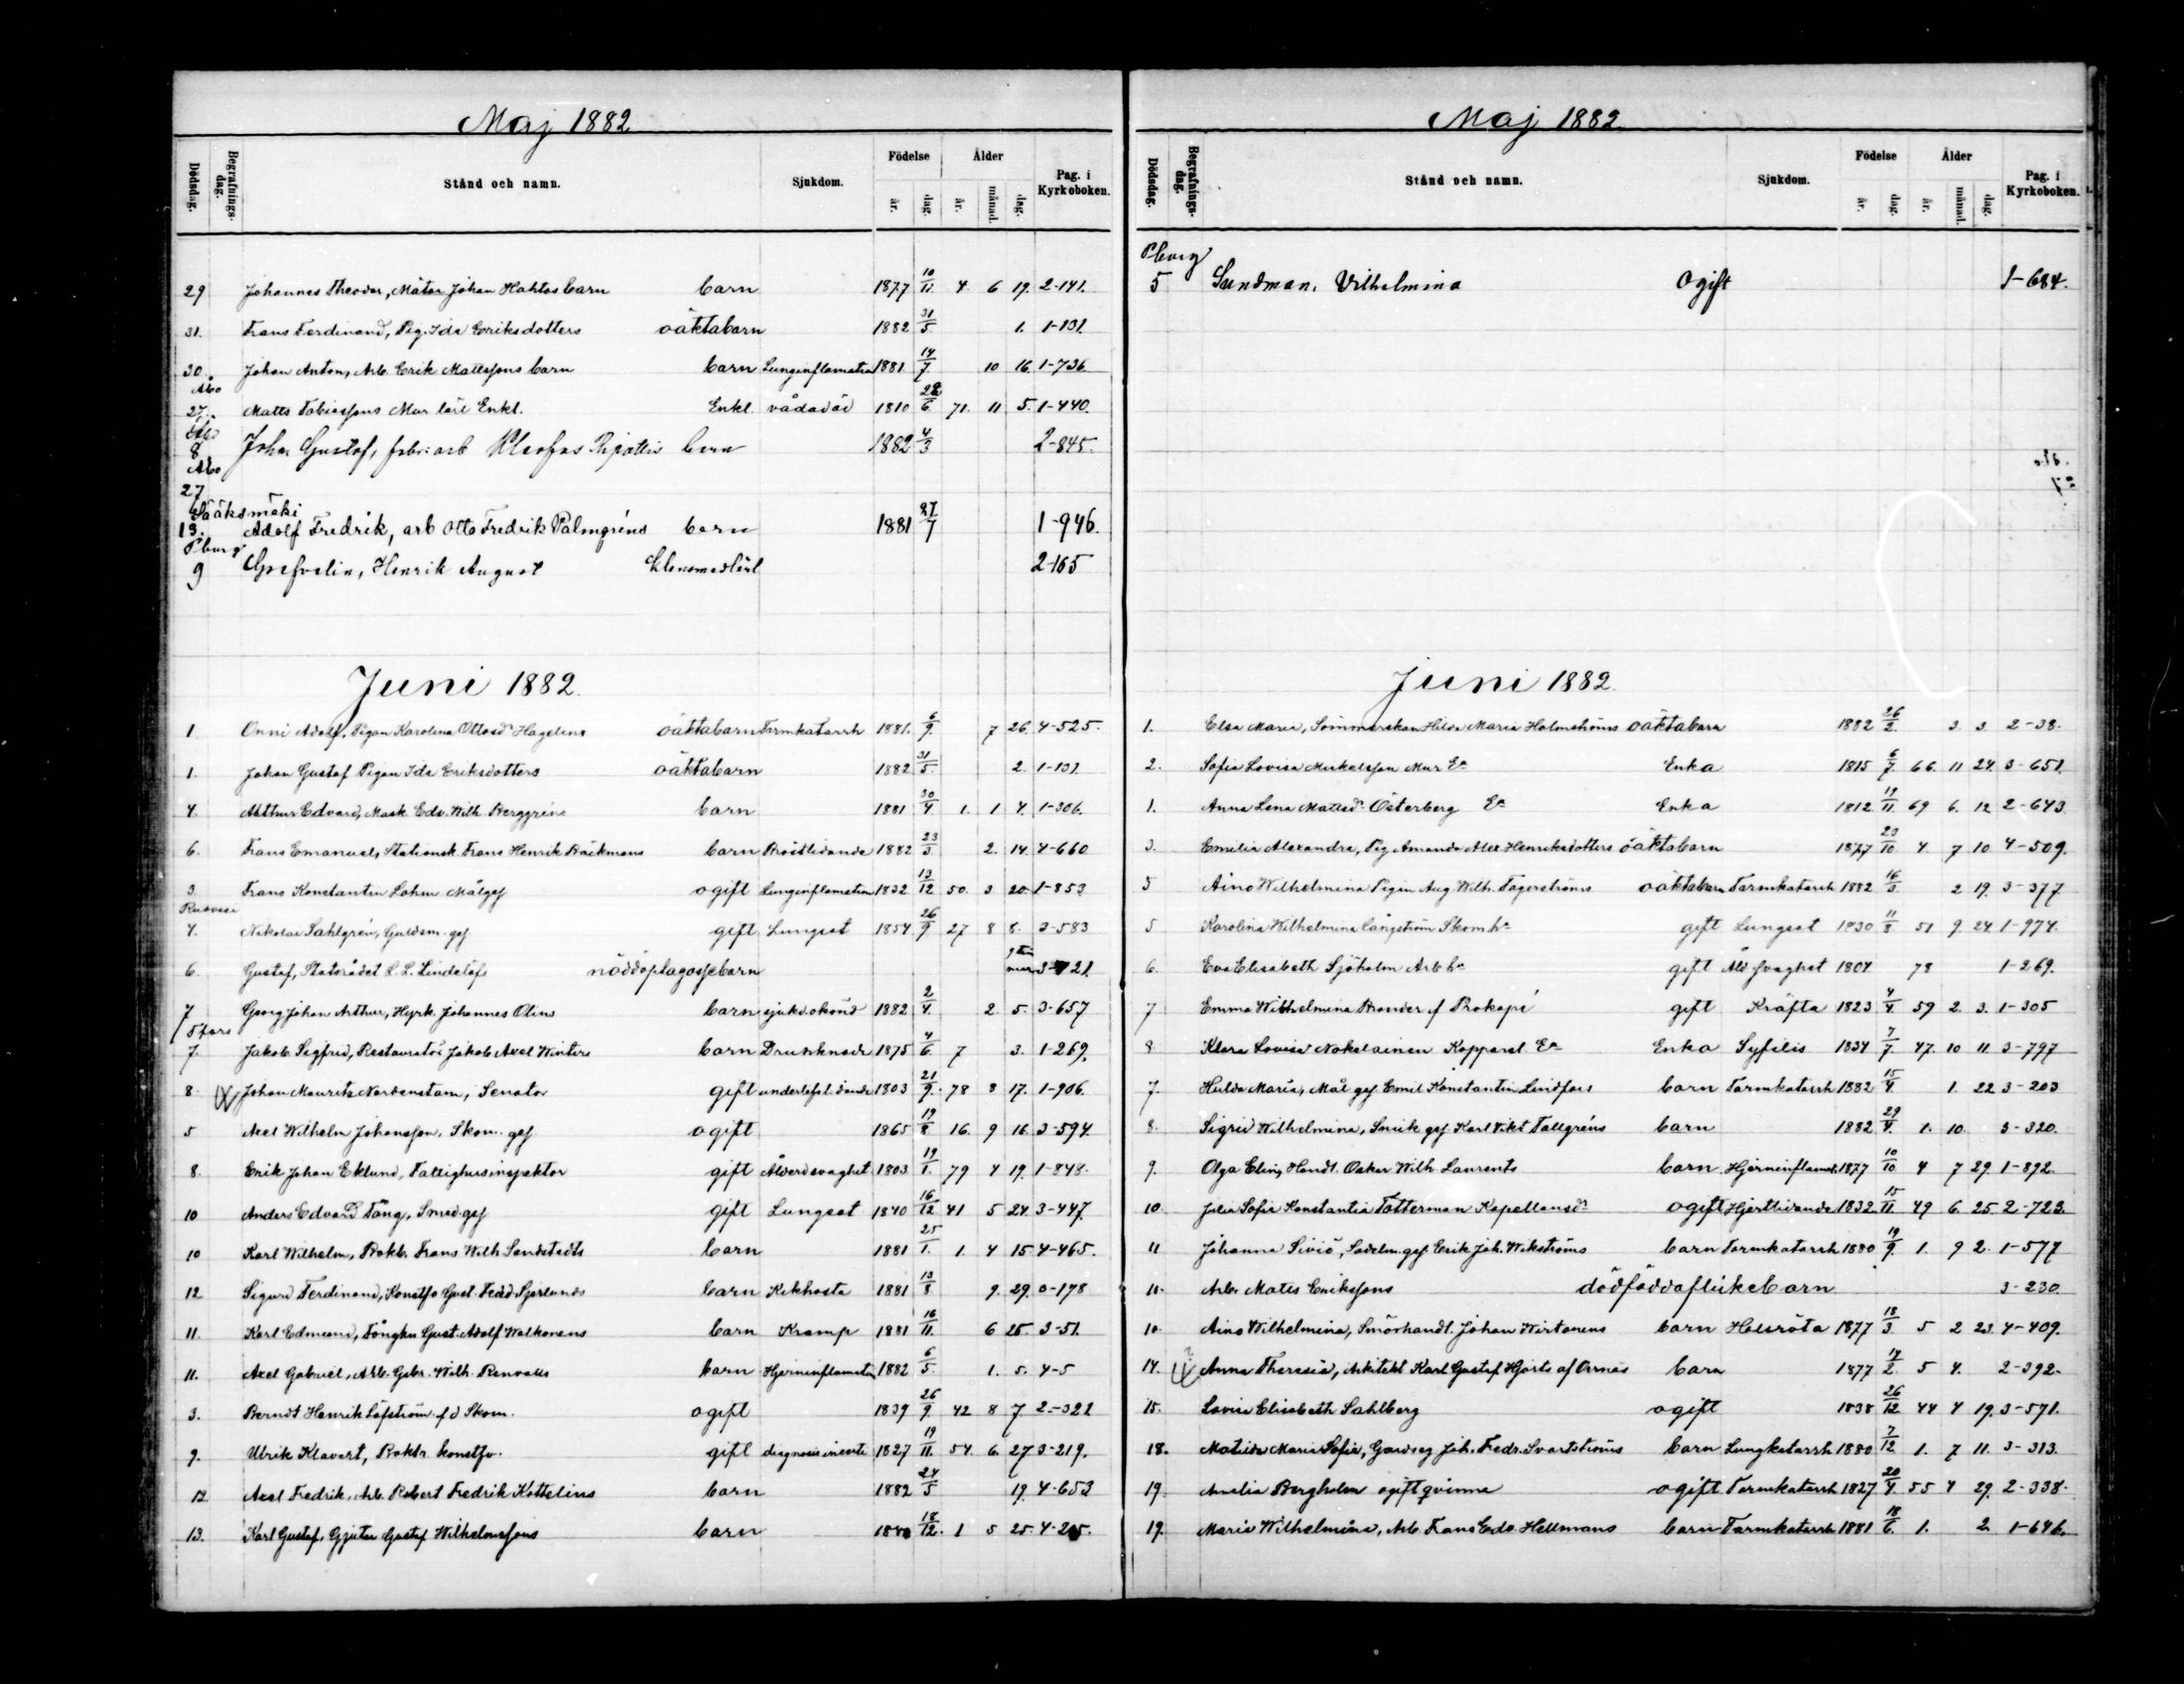 Maj 1882
Dödsdag. Begrafnings-dag. Stånd och namn. Sjukdom. Födelse år. dag. Ålder år. månad. dag. Pag. i Kyrkoboken.
29 Johannes Theodor, Målar Johan Hahtos barn barn 1877 10/11 4 6 19. 2-141.
31. Frans Ferdinand, Pig. Ida Eriksdotters oäktabarn 1882 31/5 1. 1-131.
30. Johan Anton, Arb. Erik Mattssons barn barn Lunginflamation 1881 14/7 10 16. 1-736.
Åbo
27. Matts Tobiassons Mur lärl Enkl. Enkl vådadöd 1810 22/6 71. 11 5. 1-440.
8 Johan Gustaf, fabr: arb barn 1882 4/3 2-845.
Åbo
27
Sääksmäki
13. Adolf Fredrik, arb Otto Fredrik Palmgréns barn 1881 27/7 1-946.
Pburg
9 Henrik August 2-165
Juni 1882.
1. Onni Adolf, Pigan Karolina Ottosdr Hagelins oäktabarn Tarmkatarrh 1881. 6/9. 7 26. 4-525.
1. Johan Gustaf Pigan Ida Eriksdotters oäktabarn 1882 31/5. 2. 1-131.
4. Arthur Edvard, Mask. Edv. Wilh. Berggréns barn 1881 30/4 1. 1 4. 1-306.
6. Frans Emanuel, Stationsk. Frans Henrik Bäckmans barn Bröstlidande 1882 23/3. 2. 14. 4-660
3. Frans Konstantin Lohm Målges ogift Lunginflamation 1832 13/12 50. 3 20. 1-853
Ruovesi
4. Nikolai Sahlgrén, Guldsm. ges gift Lungsot 1854 26/9 27 8 8. 3-583
6. Gustaf, Statsrådet L. L. Lindelöfs nöddöptagossebarn 3-721.
7 Georg Johan Arthur, Hyrk. Johannes Olins barn sjukd. okänd 1882 2/4. 2. 5. 3-657
Tfors
7. Jakob Sigfrid, Restauratör Jakob Axel Winters barn Drunknade 1875 4/6. 7 3. 1-269.
8. Johan Mauritz Nordenstam, Senator gift 1803 21/9. 78 8 17. 1-906.
5 Axel Wilhelm Johansson, Skom. ges ogift 1865 19/8 16. 9 16. 3-594.
8. Erik Johan Eklund, Fattighusinspektor gift Ålderdsvaghet 1803 19/1. 79 4 19. 1-848.
10 Anders Edvard Täng, Smedges gift Lungsot 1840 16/12 41 5 24. 3-447.
10 Karl Wilhelm, Bokb. Frans Wilh. Sandstedts barn 1881 25/1. 1. 4 15. 4-465.
12 Sigurd Ferdinand, Konstfo Gust. Ferd. Sjorlunds barn Kikhosta 1881 13/8 9. 29. 0-178
11. Karl Edmund, Fångku Gust. Adolf Walkonens barn Kramp 1881 16/11. 6 25. 3-51.
11. Axel Gabriel, Arb. Gabr. Wilh. Renvalls barn Hjerninflamation 1882 6/5. 1. 5. 4-5
3. Berndt Henrik Löfström f d Skom. ogift 1839 26/9. 42 8 7 2-322
9. Ulrik Klavert, Boktr. konstfo. gift diagnosis incerta 1827 19/11. 54. 6. 27 3-219.
12. Axel Fredrik, Arb. Robert Fredrik Kottelins barn 1882 24/5 19. 4-653
13. Karl Gustaf, Gjutar Gustaf Wilhelmssons barn 1880 18/12. 1 5 25. 4-215.
Maj 1882.
Dödsdag. Begrafnings-dag. Stånd och namn. Sjukdom. Födelse år. dag. Ålder år. månad. dag. Pag. i Kyrkoboken.
Pburg
5 Sundman, Vilhelmina Ogift 1-684.
Juni 1882
1. Elsa Maria, Sömmerskan Hilda Maria Holmströms oäktabarn 1882 26/2. 3. 3. 2-38.
2. Sofia Lovisa Mickelsson Mur Ea Enka 1815 6/7. 66. 11 24. 3-651.
1. Anna Lena Mattsdr Österberg Ea Enka 1812 19/11. 69 6. 12 2-643
3. Emilia Alexandra, Pig Amanda Alex Henriksdotters oäktabarn 1877 23/10 4. 7 10 4-509.
5 Aino Wilhelmina Pigan Aug. Wilh. Fagerströms oäktabarn Tarmkatarrh 1882 16/3. 2 19. 3-377
5 Karolina Wilhelmina Långström Skom ha gift Lungsot 1830 11/8 51 9. 24. 1-974.
6. Eva Elisabeth Sjöholm Arb ha gift Åld. svaghet 1804 78 1-269.
7 Emma Wilhelmina Brander f Prokopé gift Kräfta 1823 4/4 59 2. 3. 1-305
8 Klara Lovisa Nokelainen Kopparsl. Ea Enka Syfilis 1834 7/7. 47. 10 11. 3-797
7. Hulda Maria, Mål ges Emil Konstantin Lindfors barn Tarmkatarrh 1882 15/4. 1. 22 3-203
8. Sigrid Wilhelmina, Smidges. Karl Vikt Tallgréns barn 1882 29/4. 1. 10. 3-320.
9. Olga Elin, Handl. Oskar Wilh. Laurents barn Hjerninflamat. 1877 10/10 4 7 29. 1-892.
10. Julia Sofia Konstantia Tötterman Kapellansdr ogift Hjertlidande 1832 15/11. 49 6. 25. 2-723.
11 Johanna Siviä, Sadelm. ges. Erik Joh. Wikströms barn Tarmkatarrh 1880 19/9. 1. 9 2. 1-577
11. Arb. Matts Erikssons dödföddaflickebarn 3-230
10 Aino Wilhelmina, Smörhandl. Johan Wirtanens barn Halsröta 1877 18/3. 5 2 23. 4-409.
14. Anna Theresia, Arkitekt Karl Gustaf Hjorts af Ornäs barn 1877 14/2. 5 4. 2-392.
15. Lovisa Elisabeth Sahlberg ogift 1838 26/12. 44 4 19. 3-571.
18. Matilda Maria Sofia, Joh. Fredr. Svartströms barn Lungkatarrh 1880 7/12 1. 7 11. 3-313.
19 Amalia Bergholm ogift qvinna ogift Tarmkatarrh 1827 20/4. 55 4 29. 2-338.
19. Maria Wilhelmina, Arb Frans Edv. Hellmans barn Tarmkatarrh 1881 18/6. 1. 2. 1-646.